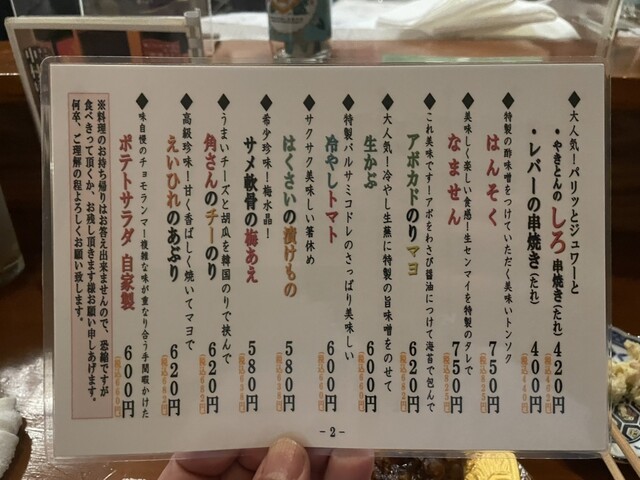 ◆大人気！パリッとジュワーと
・やきとんの しろ 串焼き(たれ) 420円
(税込462円)
・レバーの串焼き(たれ) 400円
(税込440円)
◆特製の酢味噌をつけていただく美味いトンソク
はんそく 750円
(税込825円)
◆美味しく楽しい食感！生センマイを特製のタレで
なません 750円
(税込825円)
◆これ美味です！アボをわさび醤油につけて海苔で包んで
アボカドのりマヨ 620円
(税込682円)
◆大人気！冷やし生蕪に特製の旨味噌をのせて
生かぶ 600円
(税込660円)
◆特製バルサミコドレのさっぱり美味しい
冷やしトマト 600円
(税込660円)
◆サクサク美味しい箸休め
はくさいの漬けもの 580円
(税込638円)
◆希少珍味！梅水晶！
サメ軟骨の梅あえ 580円
(税込638円)
◆うまいチーズと胡瓜を韓国のりで挟んで
角さんのチーのり 620円
(税込682円)
◆高級珍味！甘く香ばしく焼いてマヨで
えいひれのあぶり 620円
(税込682円)
◆味自慢のチョモランマ！複雑な味が重なり合う手間暇かけた
ポテトサラダ 自家製 600円
(税込660円)
※料理のお持ち帰りはお答え出来ませんので、恐縮ですが
食べきって頂くか、お残し頂きます様お願い申しあげます。
何卒、ご理解の程よろしくお願い致します。
-2-